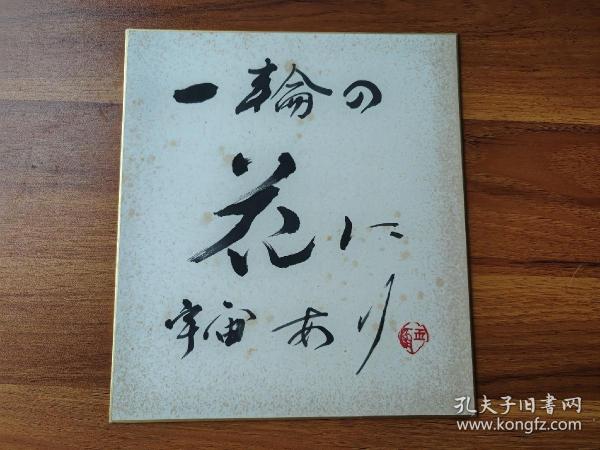 一輪の
花に
宇宙あり
孔夫子旧書网
www.kongfz.com